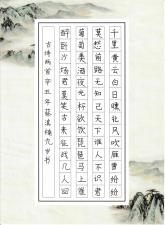 千里黄云白日曛北风吹雁雪纷纷
莫愁前路无知己天下谁人不识君
葡萄美酒夜光杯欲饮琵琶马上催
醉卧沙场君莫笑古来征战几人回
古诗两首辛丑年九岁书